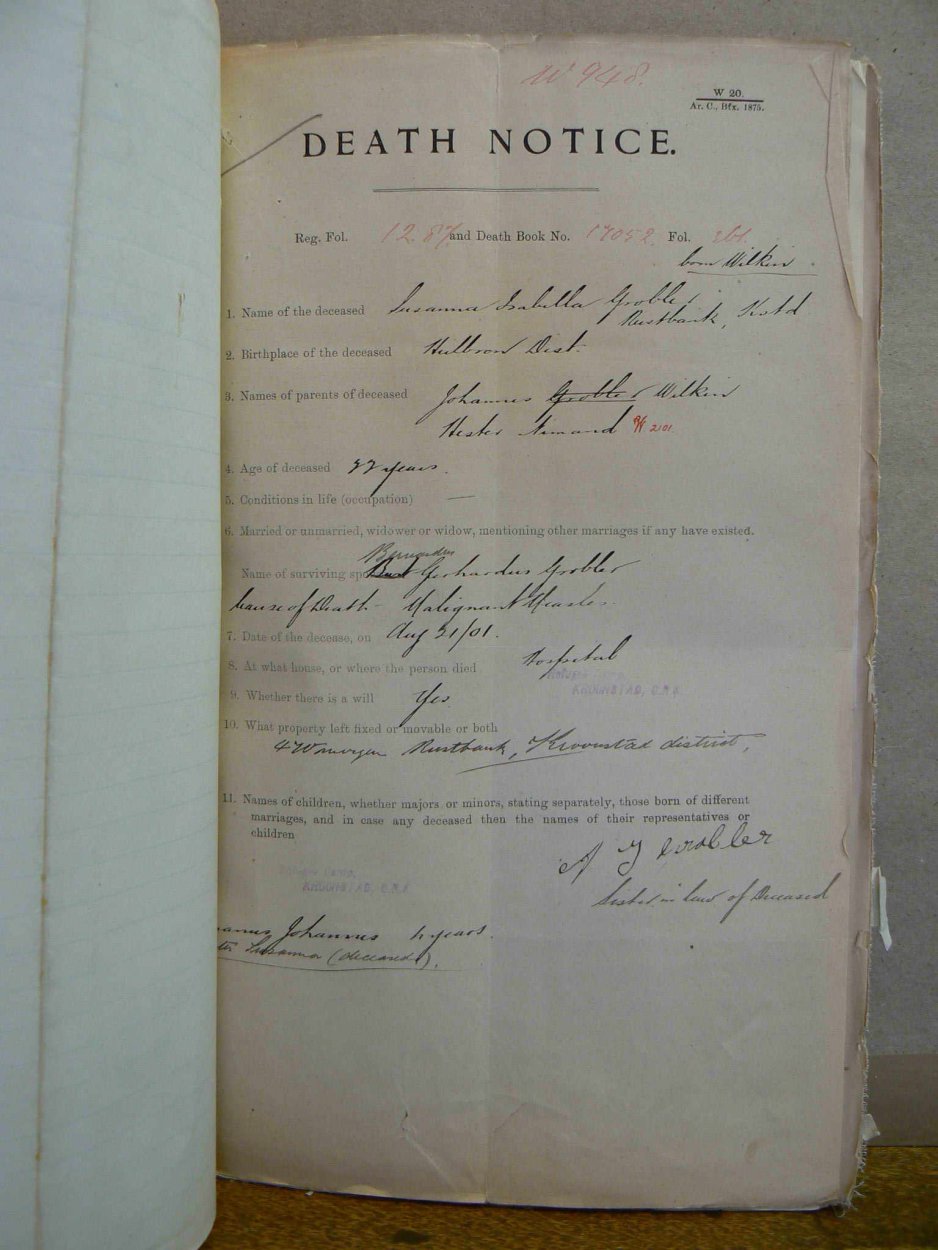 W 948.
W 20.
Ar. C., Bfx. 1875.
DEATH NOTICE.
Reg. Fol. 12.87 and Death Book No. 17052 Fol.
born Wilkin
1. Name of the deceased Susanna Isabella Grobler
Rustbank, Kstd
2. Birthplace of the deceased Heilbron Dist.
3. Names of parents of deceased Johannes Grobler Wilkin
Hester Nimand
4. Age of deceased years.
5. Conditions in life (occupation) —
6. Married or unmarried, widower or widow, mentioning other marriages if any have existed.
Bernardus
Name of surviving Gerhardus Grobler
Cause of Death - Malignant Measles.
7. Date of the decease, on Aug 21/01.
8. At what house, or where the person died Hospital
KROONSTAD, O.R.C.
9. Whether there is a will Yes.
10. What property left fixed or movable or both
morgen Rustbank, Kroonstad district,
11. Names of children, whether majors or minors, stating separately, those born of different
marriages, and in case any deceased then the names of their representatives or
children
Grobler
KROONSTAD, O.R.C.
Sister in law of Deceased
Johannes years.
Susanna (deceased).